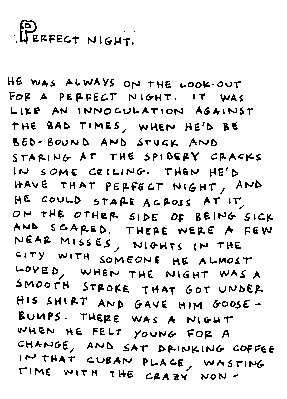 PERFECT NIGHT.
HE WAS ALWAYS ON THE LOOK-OUT
FOR A PERFECT NIGHT. IT WAS
LIKE AN INNOCULATION AGAINST
THE BAD TIMES, WHEN HE'D BE
BED-BOUND AND STUCK AND
STARING AT THE SPIDERY CRACKS
IN SOME CEILING. THEN HE'D
HAVE THAT PERFECT NIGHT, AND
HE COULD STARE ACROSS AT IT,
ON THE OTHER SIDE OF BEING SICK
AND SCARED. THERE WERE A FEW
NEAR MISSES, NIGHTS IN THE
CITY WITH SOMEONE HE ALMOST
LOVED, WHEN THE NIGHT WAS A
SMOOTH STROKE THAT GOT UNDER
HIS SHIRT AND GAVE HIM GOOSE-
BUMPS. THERE WAS A NIGHT
WHEN HE FELT YOUNG FOR A
CHANGE, AND SAT DRINKING COFFEE
IN THAT CUBAN PLACE, WASTING
TIME WITH THE CRAZY NON-